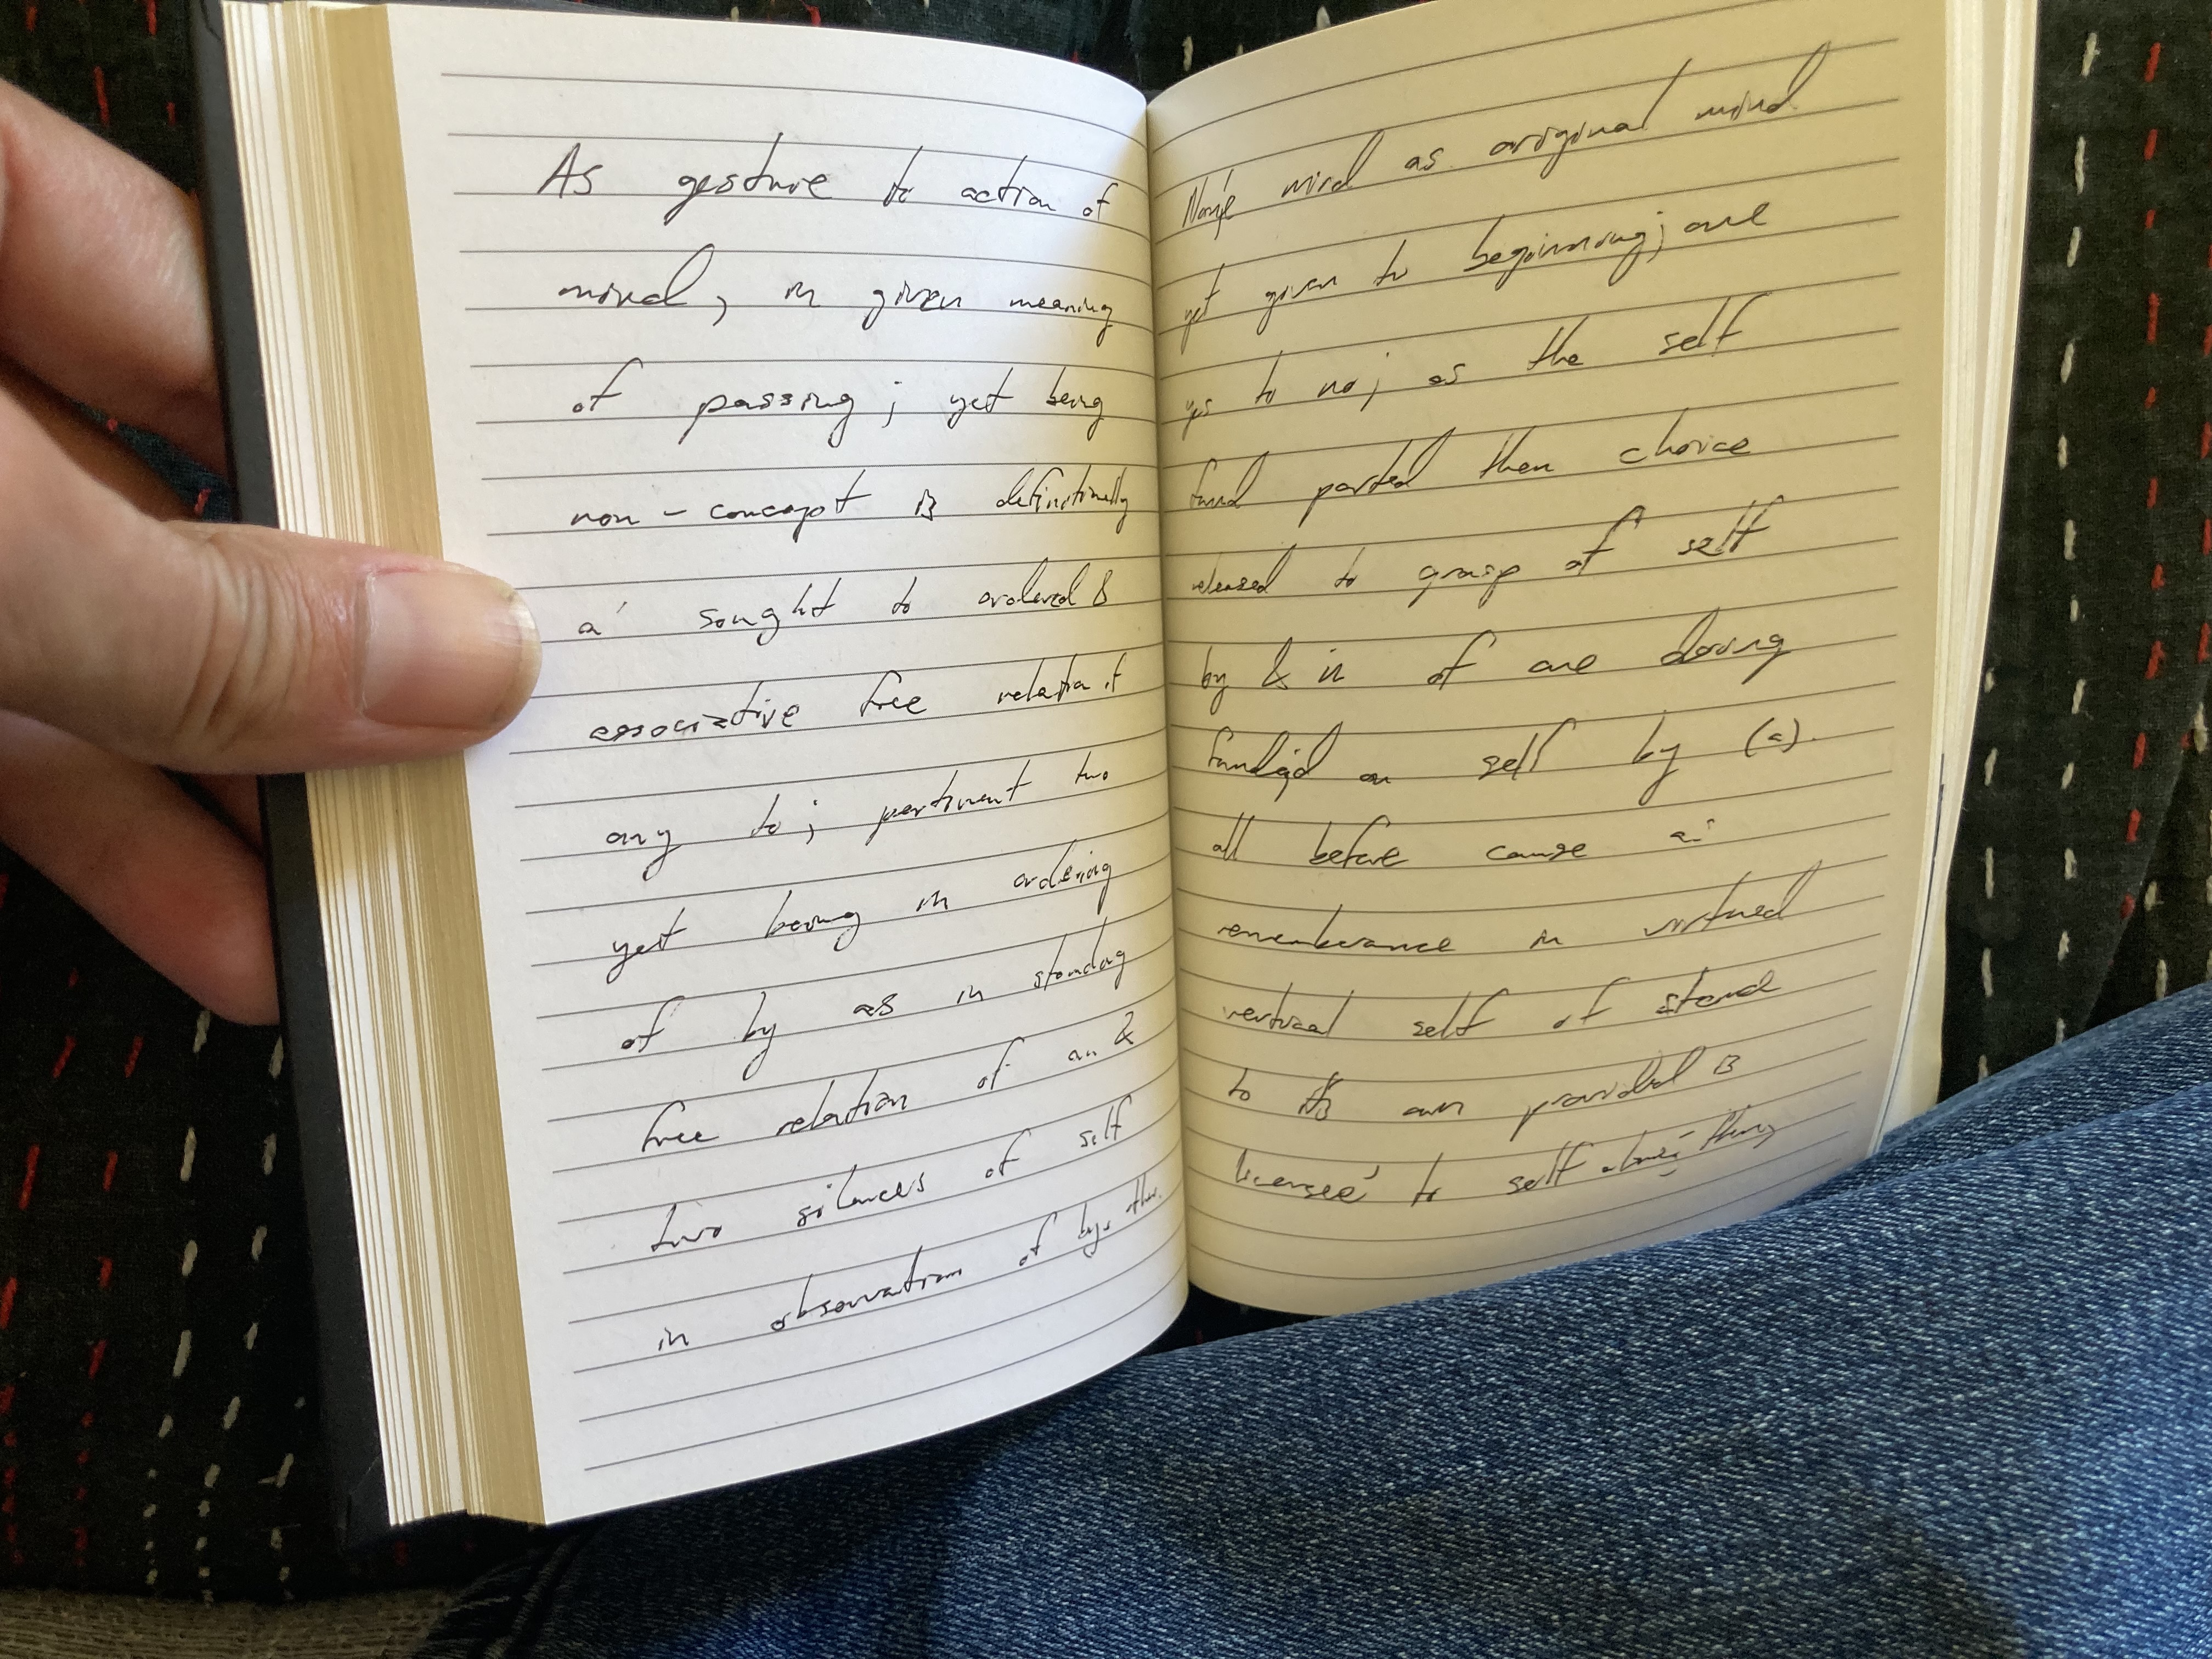 As gesture to action of
mind, in given meaning
of passing; yet being
non-concept is definitionally
a' sought to ordered &
associative free relation it
any to; pertinent two
yet being in ordering
of by as in standing
free relation of an &
two silences of self
in observation of
mind as original mind
yet given to beginning; one
yes to no; as the self
found parted then choice
released to grasp of self
by & in of one doing
on self by (a).
all before cause a'
rememberance in virtued
vertical self of stand
to its own provided is
licensee' to self thing